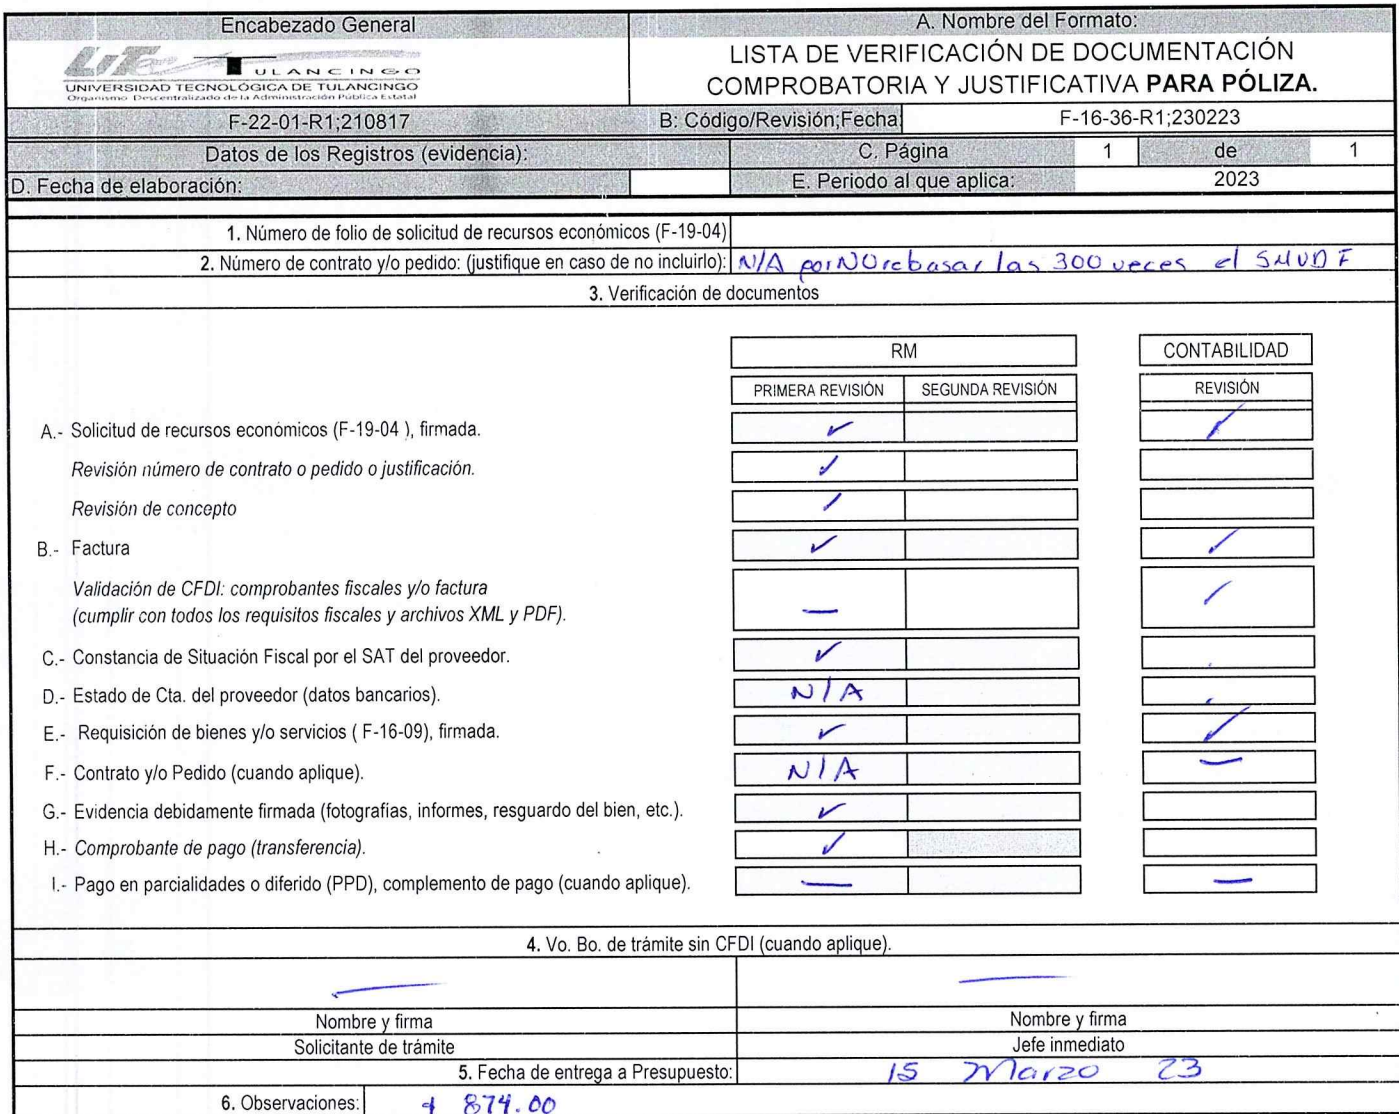 Encabezado General
A. Nombre del Formato:
UTec
TULANCINGO
UNIVERSIDAD TECNOLÓGICA DE TULANCINGO
Organismo Descentralizado de la Administración Pública Estatal
LISTA DE VERIFICACIÓN DE DOCUMENTACIÓN
COMPROBATORIA Y JUSTIFICATIVA PARA PÓLIZA.
F-22-01-R1;210817
B: Código/Revisión;Fecha:
F-16-36-R1;230223
Datos de los Registros (evidencia):
C. Página 1 de 1
D. Fecha de elaboración:
E. Periodo al que aplica: 2023
1. Número de folio de solicitud de recursos económicos (F-19-04)
2. Número de contrato y/o pedido: (justifique en caso de no incluirlo): N/A por NO rebasar las 300 veces el SMVDF
3. Verificación de documentos
RM
CONTABILIDAD
PRIMERA REVISIÓN
SEGUNDA REVISIÓN
REVISIÓN
A.- Solicitud de recursos económicos (F-19-04 ), firmada. ✓ ✓
Revisión número de contrato o pedido o justificación. ✓
Revisión de concepto ✓
B.- Factura ✓ ✓
Validación de CFDI: comprobantes fiscales y/o factura
(cumplir con todos los requisitos fiscales y archivos XML y PDF). — ✓
C.- Constancia de Situación Fiscal por el SAT del proveedor. ✓
D.- Estado de Cta. del proveedor (datos bancarios). N/A
E.- Requisición de bienes y/o servicios ( F-16-09), firmada. ✓ ✓
F.- Contrato y/o Pedido (cuando aplique). N/A —
G.- Evidencia debidamente firmada (fotografías, informes, resguardo del bien, etc.). ✓
H.- Comprobante de pago (transferencia). ✓
I.- Pago en parcialidades o diferido (PPD), complemento de pago (cuando aplique). — —
4. Vo. Bo. de trámite sin CFDI (cuando aplique).
— —
Nombre y firma
Nombre y firma
Solicitante de trámite
Jefe inmediato
5. Fecha de entrega a Presupuesto: 15 Marzo 23
6. Observaciones: 874.00